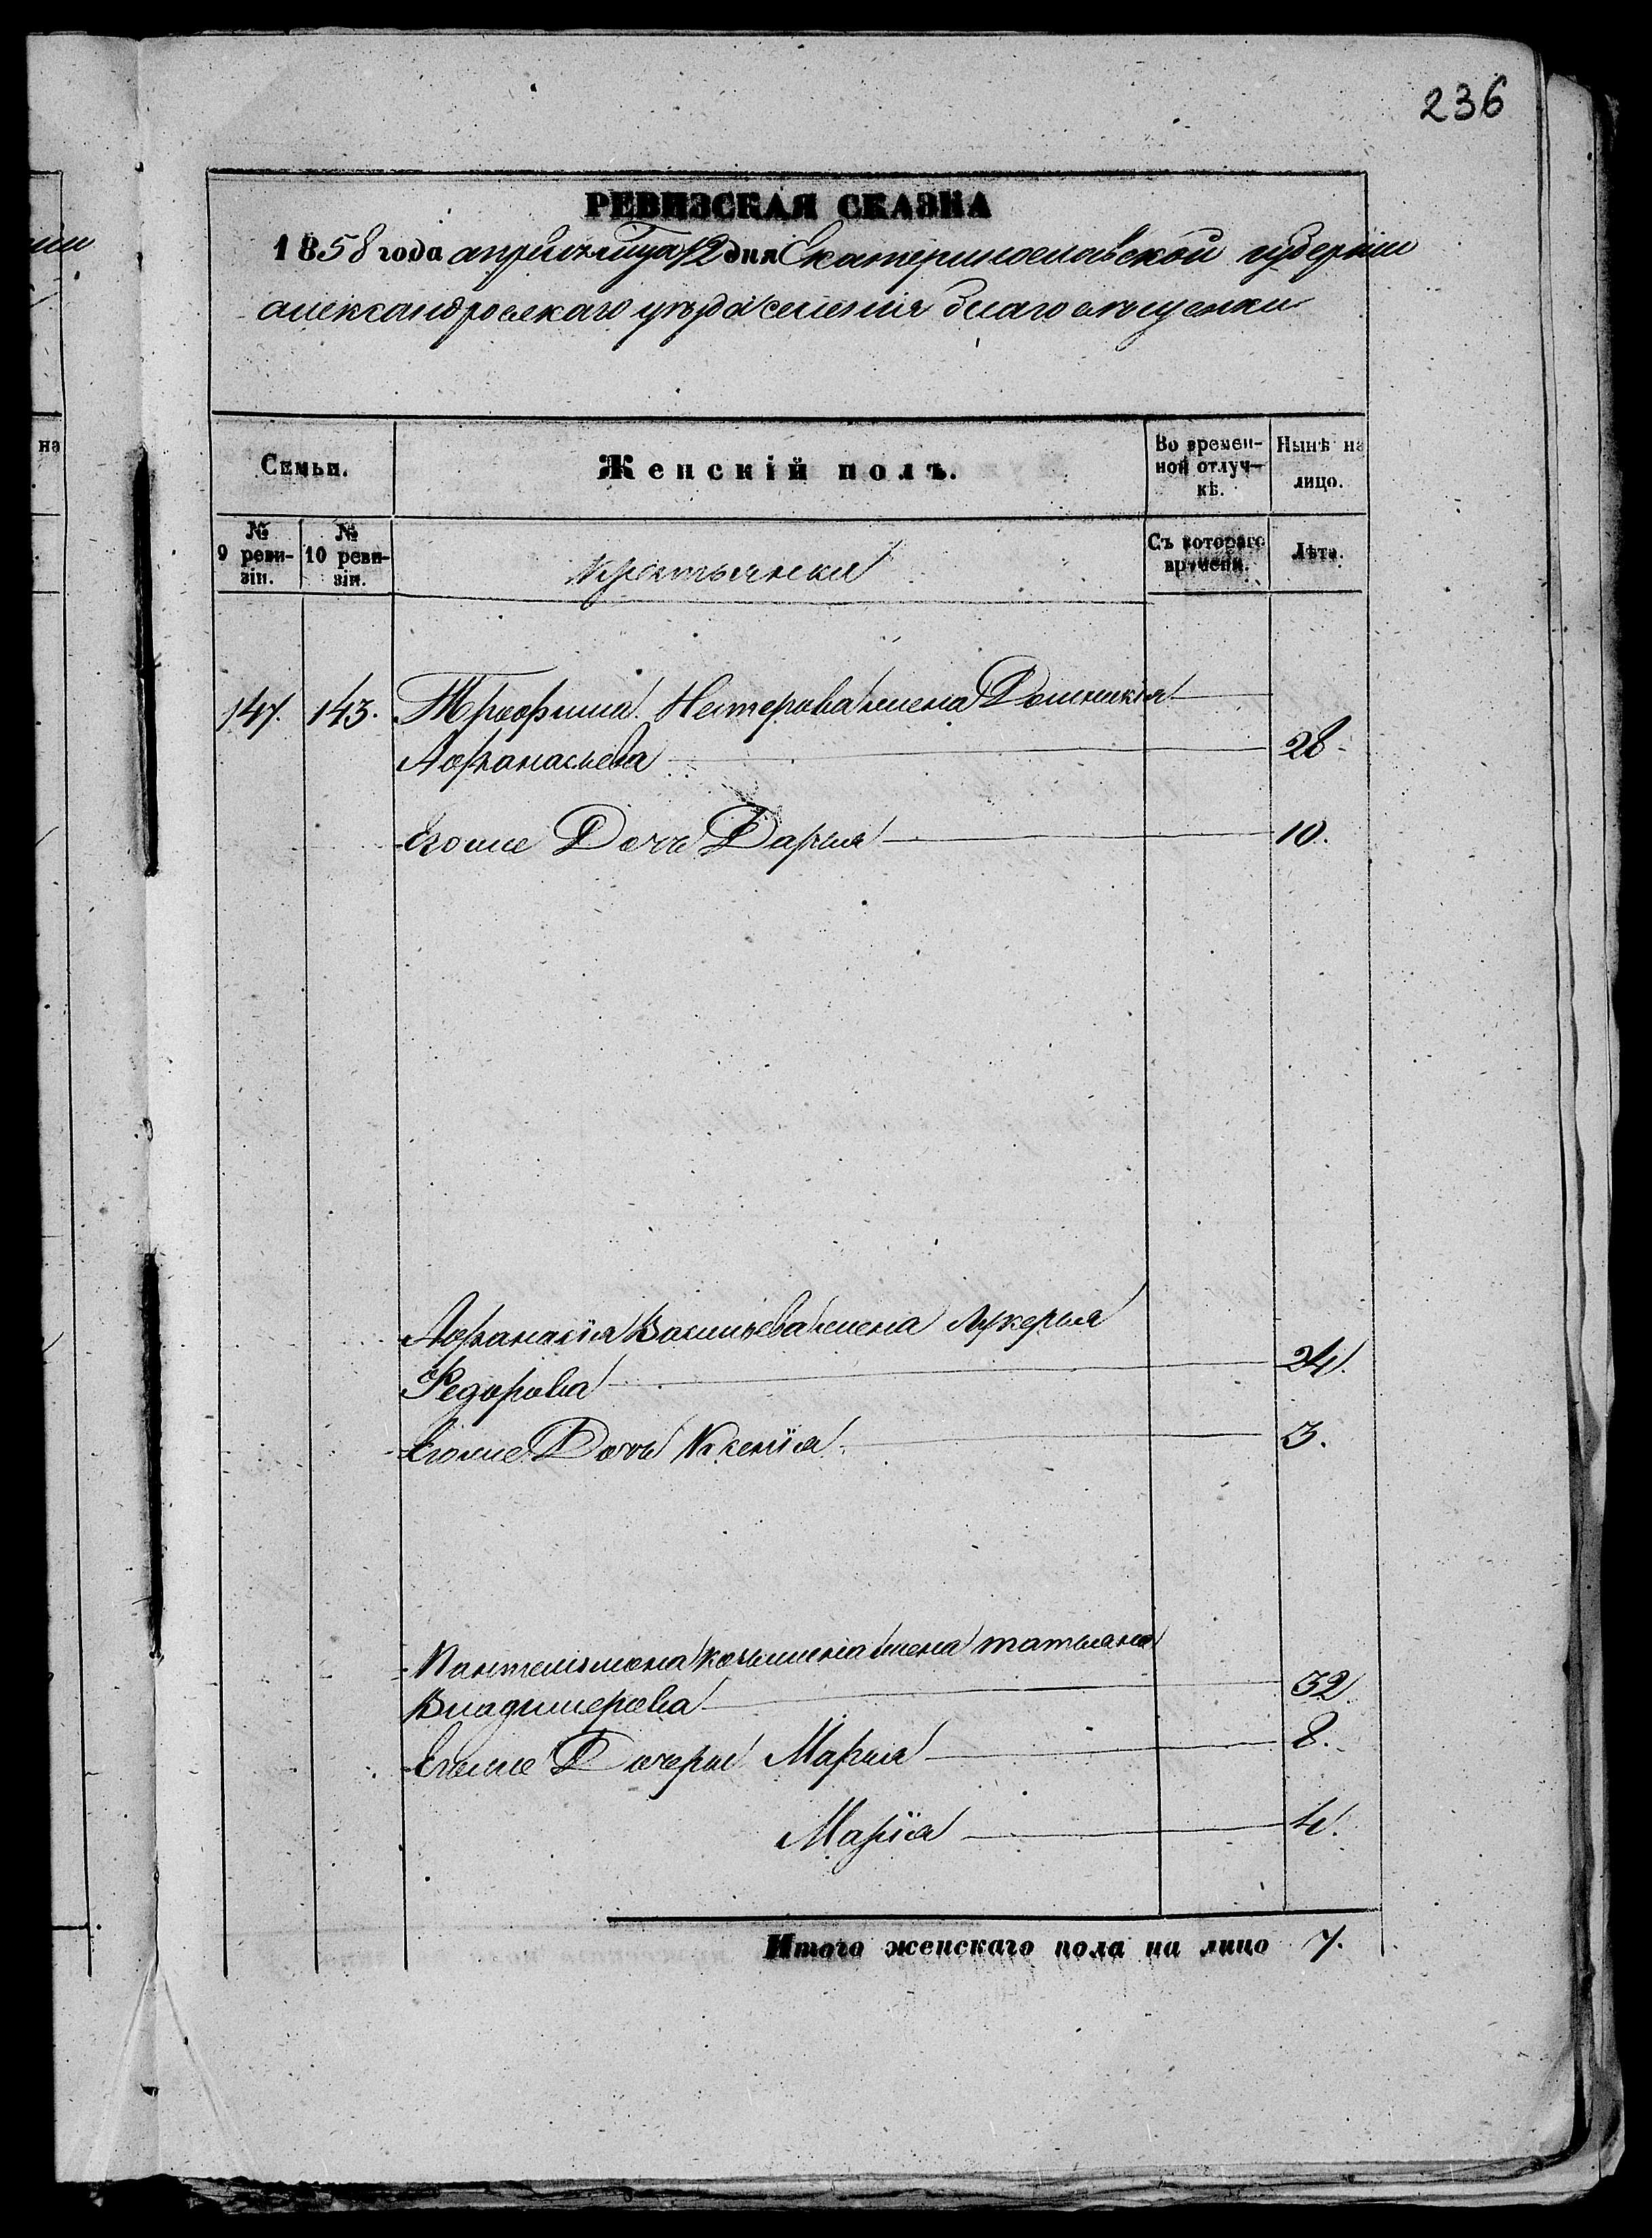 236
РЕВИЗСКАЯ СКАЗКА
1858 года апреля м-ца 12 дня Екатеринославской губернии
александровскаго уѣзда селения благовѣщенки
Семьи.
Женскій полъ.
Во времен-
ной отлуч-
кѣ.
Нынѣ на
лицо.
№
9 реви-
зіи.
№
10 реви-
зіи.
крестьянски
Съ котораго
времени.
Лѣта.
147. 143. Трофима Нестерова жена Домникія
Афанасьева 28
Егоже Дочь Дарья 10.
Афанасія Васильева жена Лукерья
Федорова 24.
Егоже Дочь Ксенія 3.
Пантелимона козьмина жена татьяна
Владимерова 32
Егоже Дочери Марья 8.
Марія 4.
Итого женскаго пола на лицо 7.
на